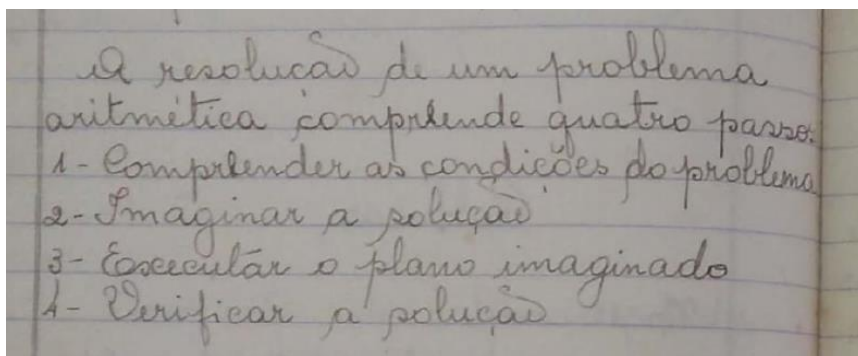 A resolução de um problema
aritmética comprende quatro passo.
1- Comprender as condições do problema
2- Imaginar a solução
3- Excecutár o plano imaginado
4- Verificar a solução